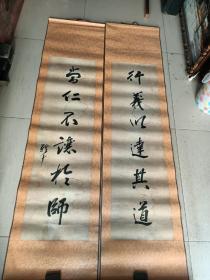 行義以達其道
當仁不讓於師